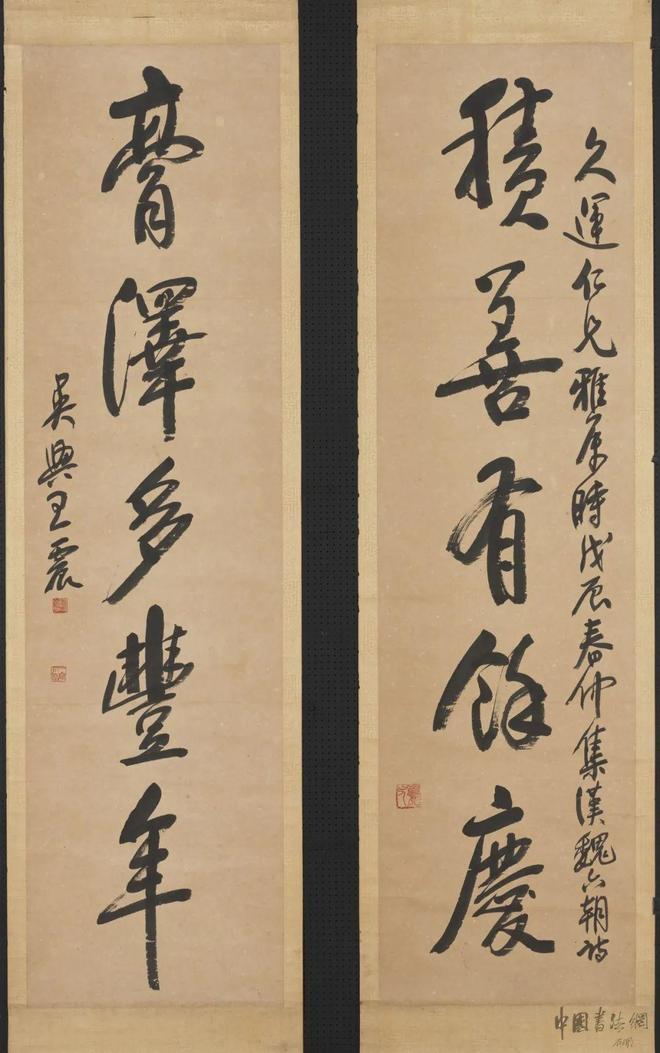 久運仁兄雅屬時戊辰春仲集漢魏六朝詩
積善有餘慶
膏澤多豐年
吳興王震
中國書法網